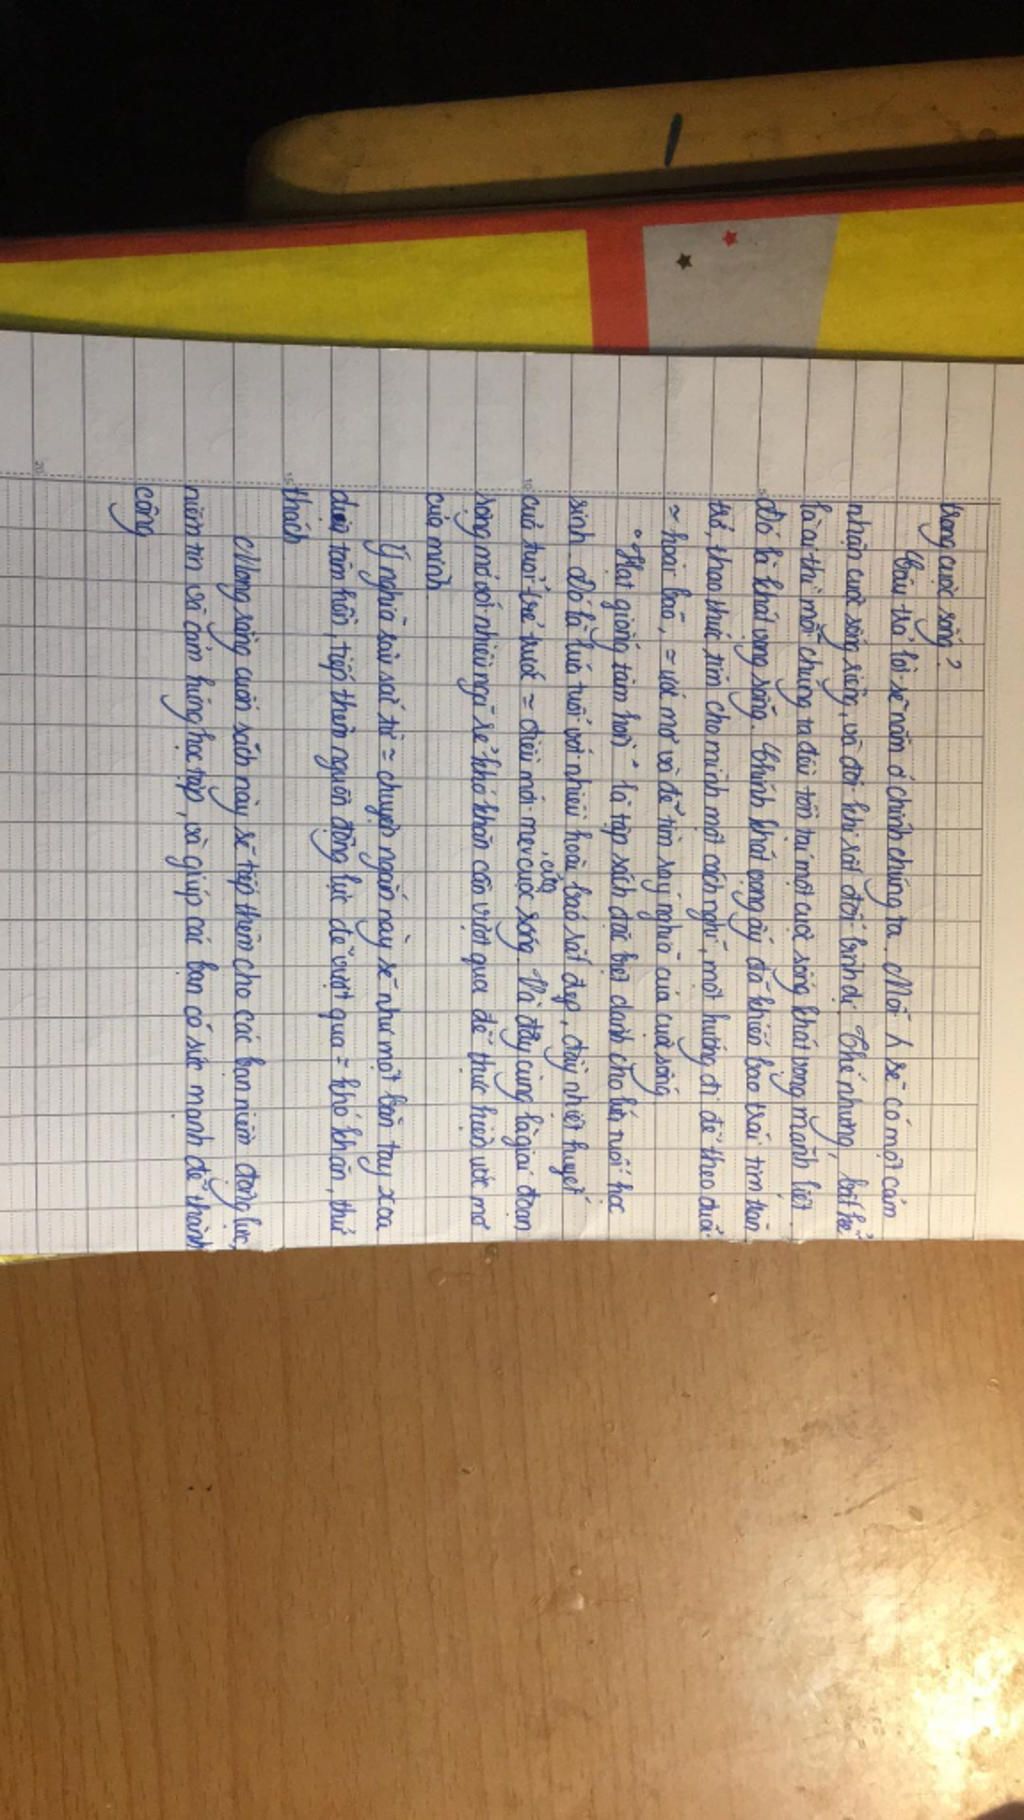 trong cuộc sống?
Câu trả lời sẽ nằm ở chính chúng ta. Mỗi h sẽ có một cảm
nhận cuộc sống riêng, và đôi khi rất đỗi bình dị. Thế nhưng, bất kể
là ai thì mỗi chúng ta đều tồn tại một cuộc sống khát vọng mãnh liệt.
Đó là khát vọng sống. Chính khát vọng ấy đã khiến bao trái tim trăn
trở, thao thức tìm cho mình một cách nghĩ, một hướng đi để theo đuổi
≈ hoài bão, ≈ ước mơ và để tìm ra ý nghĩa của cuộc sống
"Hạt giống tâm hồn" là tập sách đặc biệt dành cho lứa tuổi học
sinh. Đó là lứa tuổi với nhiều hoài bão rất đẹp, đầy nhiệt huyết
của tuổi trẻ trước ≈ điều mới mẻ của cuộc sống. Và đây cũng là giai đoạn
sóng mở với nhiều ngã rẽ khó khăn cần vượt qua để thực hiện ước mơ
của mình
Ý nghĩa sâu sắc từ ≈ chuyện ngắn này sẽ như một bàn tay xoa
dịu tâm hồn, tiếp thêm nguồn động lực để vượt qua ≈ khó khăn, thử
thách
Mong rằng cuốn sách này sẽ tiếp thêm cho các bạn niềm động lực,
niềm tin và cảm hứng học tập, và giúp các bạn có sức mạnh để thành
công
20
15
10
5